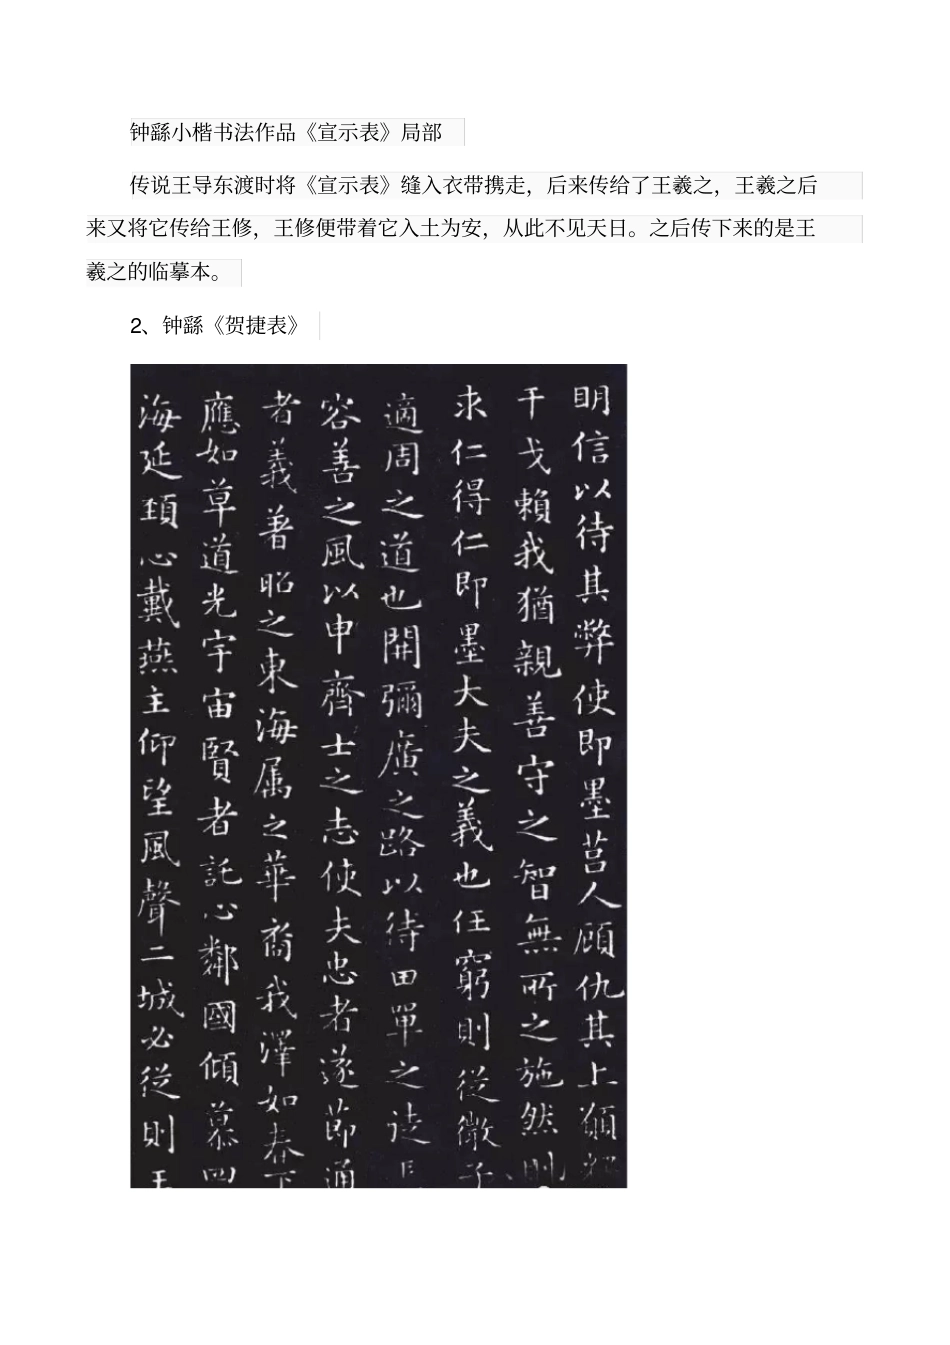 钟繇小楷书法作品《宣示表》局部
传说王导东渡时将《宣示表》缝入衣带携走，后来传给了王羲之，王羲之后
来又将它传给王修，王修便带着它入土为安，从此不见天日。之后传下来的是王
羲之的临摹本。
2、钟繇《贺捷表》
明信以待其弊使即墨莒人顧仇其上願
干戈賴我猶親善守之智無所之施然則
求仁得仁即墨大夫之義也任窮則從微子
適周之道也開彌廣之路以待田單之徒長
容善之風以申齊士之志使夫忠者遂節通
者義著昭之東海属之華裔我澤如春下
應如草道光宇宙賢者託心鄰國傾慕四
海延頚心戴燕主仰望風聲二城必從則王